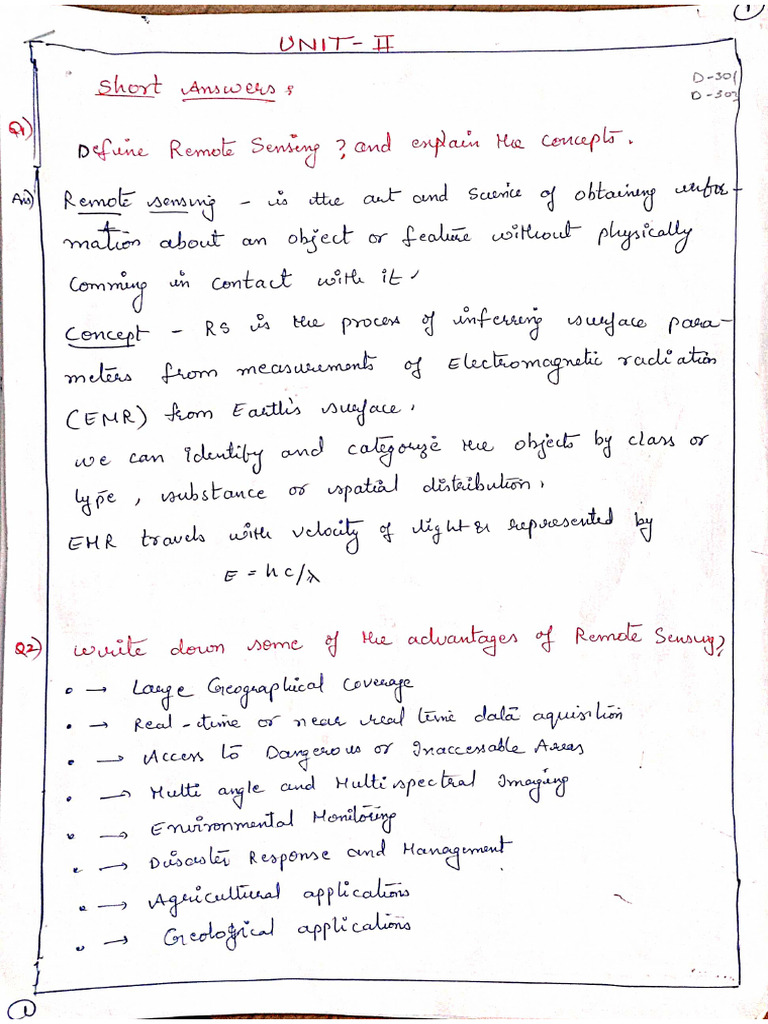 1
UNIT - II
Short Answers :
D-301
D-303
Q1)
Define Remote Sensing ? and explain the concepts.
Ans) Remote sensing - is the art and science of obtaining infor-
mation about an object or feature without physically
comming in contact with it.
Concept - RS is the process of inferring surface para-
meters from measurements of Electromagnetic radiation
(EMR) from Earth's surface.
we can identify and categorize the objects by class or
type, substance or spatial distribution.
EMR travels with velocity of light & represented by
E = hc/λ
Q2) Write down some of the advantages of Remote Sensing?
→ Large Geographical coverage
→ Real-time or near real time data aquisition
→ Access to Dangerous or Inaccessable Areas
→ Multi angle and Multispectral Imaging
→ Environmental Monitoring
→ Disaster Response and Management
→ Agricultural applications
→ Geological applications
1